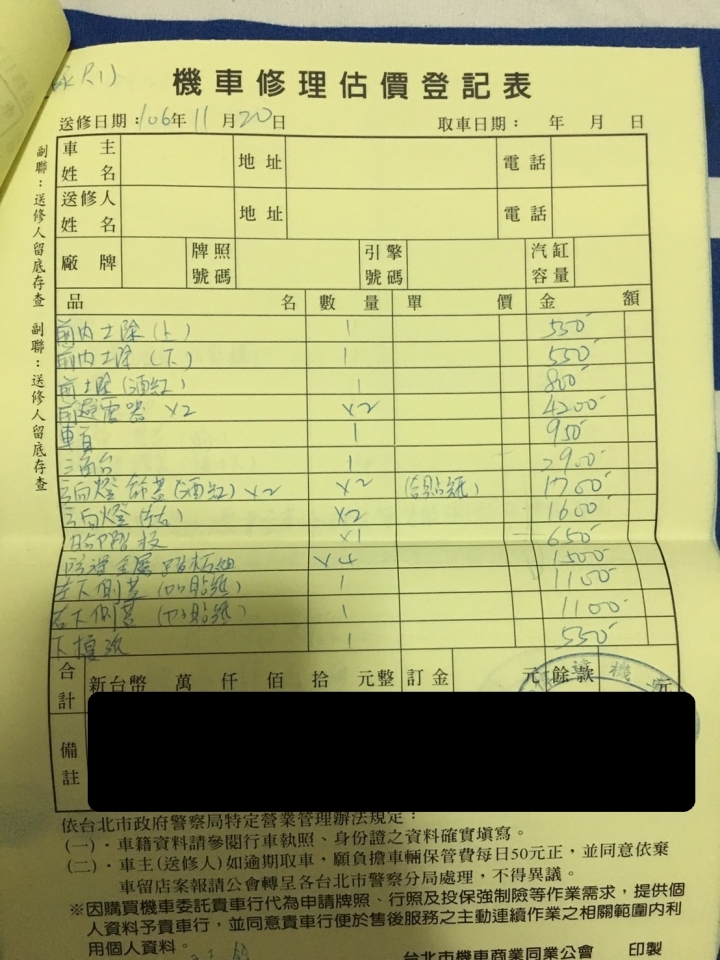 機車修理估價登記表
送修日期:106年11月20日 取車日期: 年 月 日
副聯:送修人留底存查 副聯:送修人留底存查
車主姓名 地址 電話
送修人姓名 地址 電話
廠牌 牌照號碼 引擎號碼 汽缸容量
品名 數量 單價 金額
前內土除(上) 1 550
前內土除(下) 1 550
前土除(酒紅) 1 800
前避震器 x2 x2 4200
車頁 1 950
三角台 1 2900
方向燈 (酒紅) x2 x2 (含貼紙) 1700
方向燈(左右) x2 1600
腳踏板 x1 650
防滑金屬踏板 1500
左下側蓋(加貼紙) 1 1100
右下側蓋(加貼紙) 1 1100
下擾流 1 550
合計 新台幣 萬 仟 佰 拾 元整 訂金 元 餘款 元
備註
依台北市政府警察局特定營業管理辦法規定:
(一)·車籍資料請參閱行車執照、身份證之資料確實填寫。
(二)·車主(送修人)如逾期取車,願負擔車輛保管費每日50元正,並同意依棄
車留店案報請公會轉呈各台北市警察分局處理,不得異議。
※因購買機車委託貴車行代為申請牌照、行照及投保強制險等作業需求,提供個
人資料予貴車行,並同意貴車行便於售後服務之主動連續作業之相關範圍內利
用個人資料。
台北市機車商業同業公會 印製